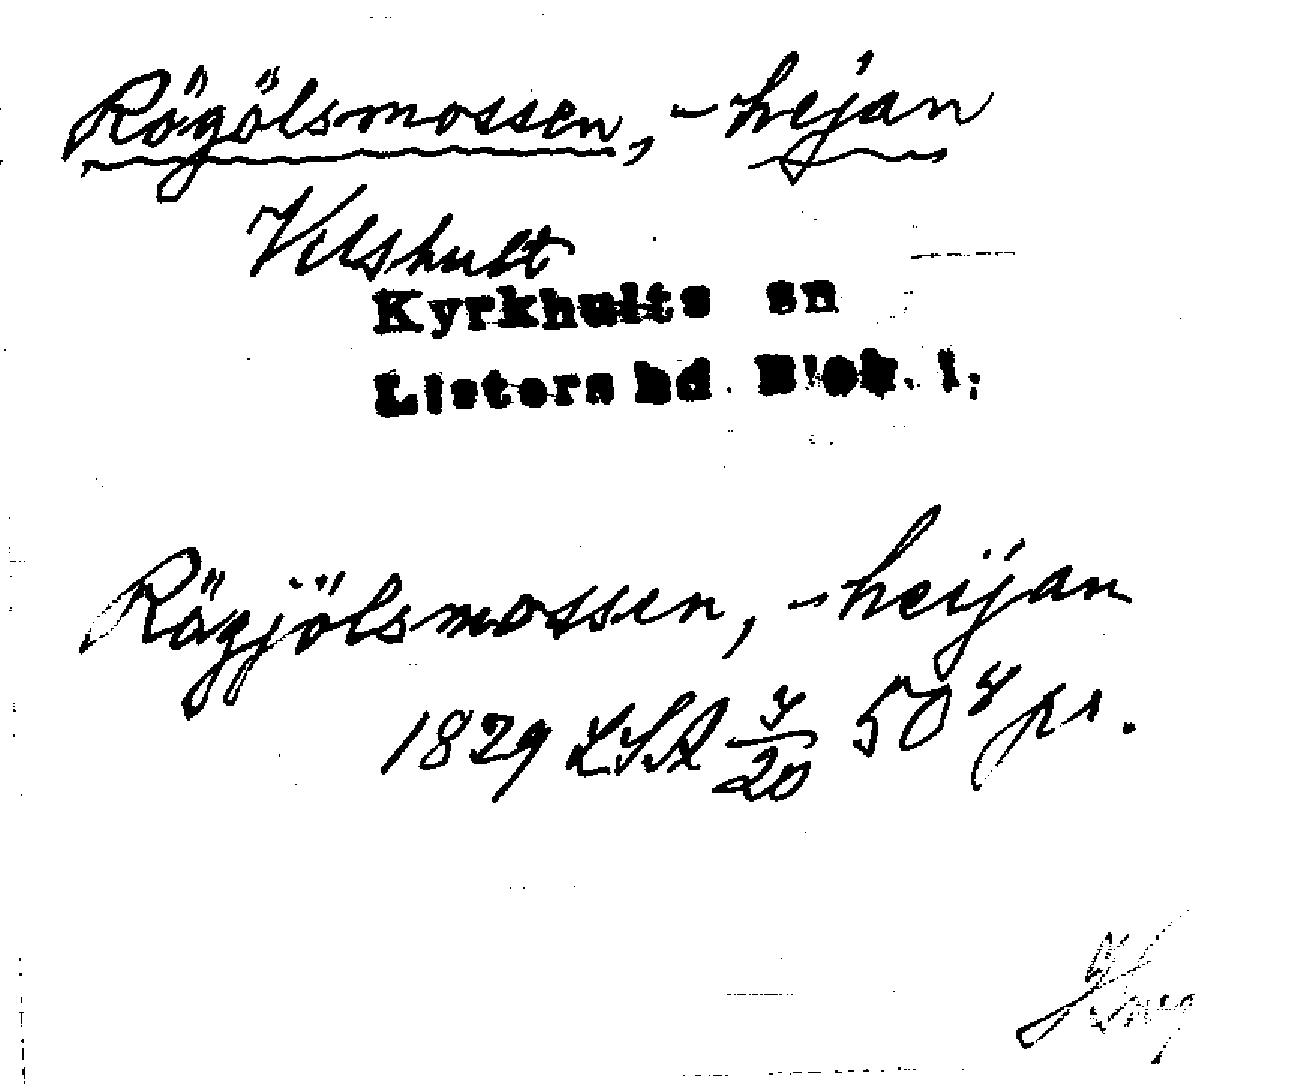 Rögölsmossen, -hejan
Vilshult
Kyrkhults sn
Listers hd. Blek. l.
Rögjölsmossen, -heijan
1829 LSA 7/20 50 4 pr.